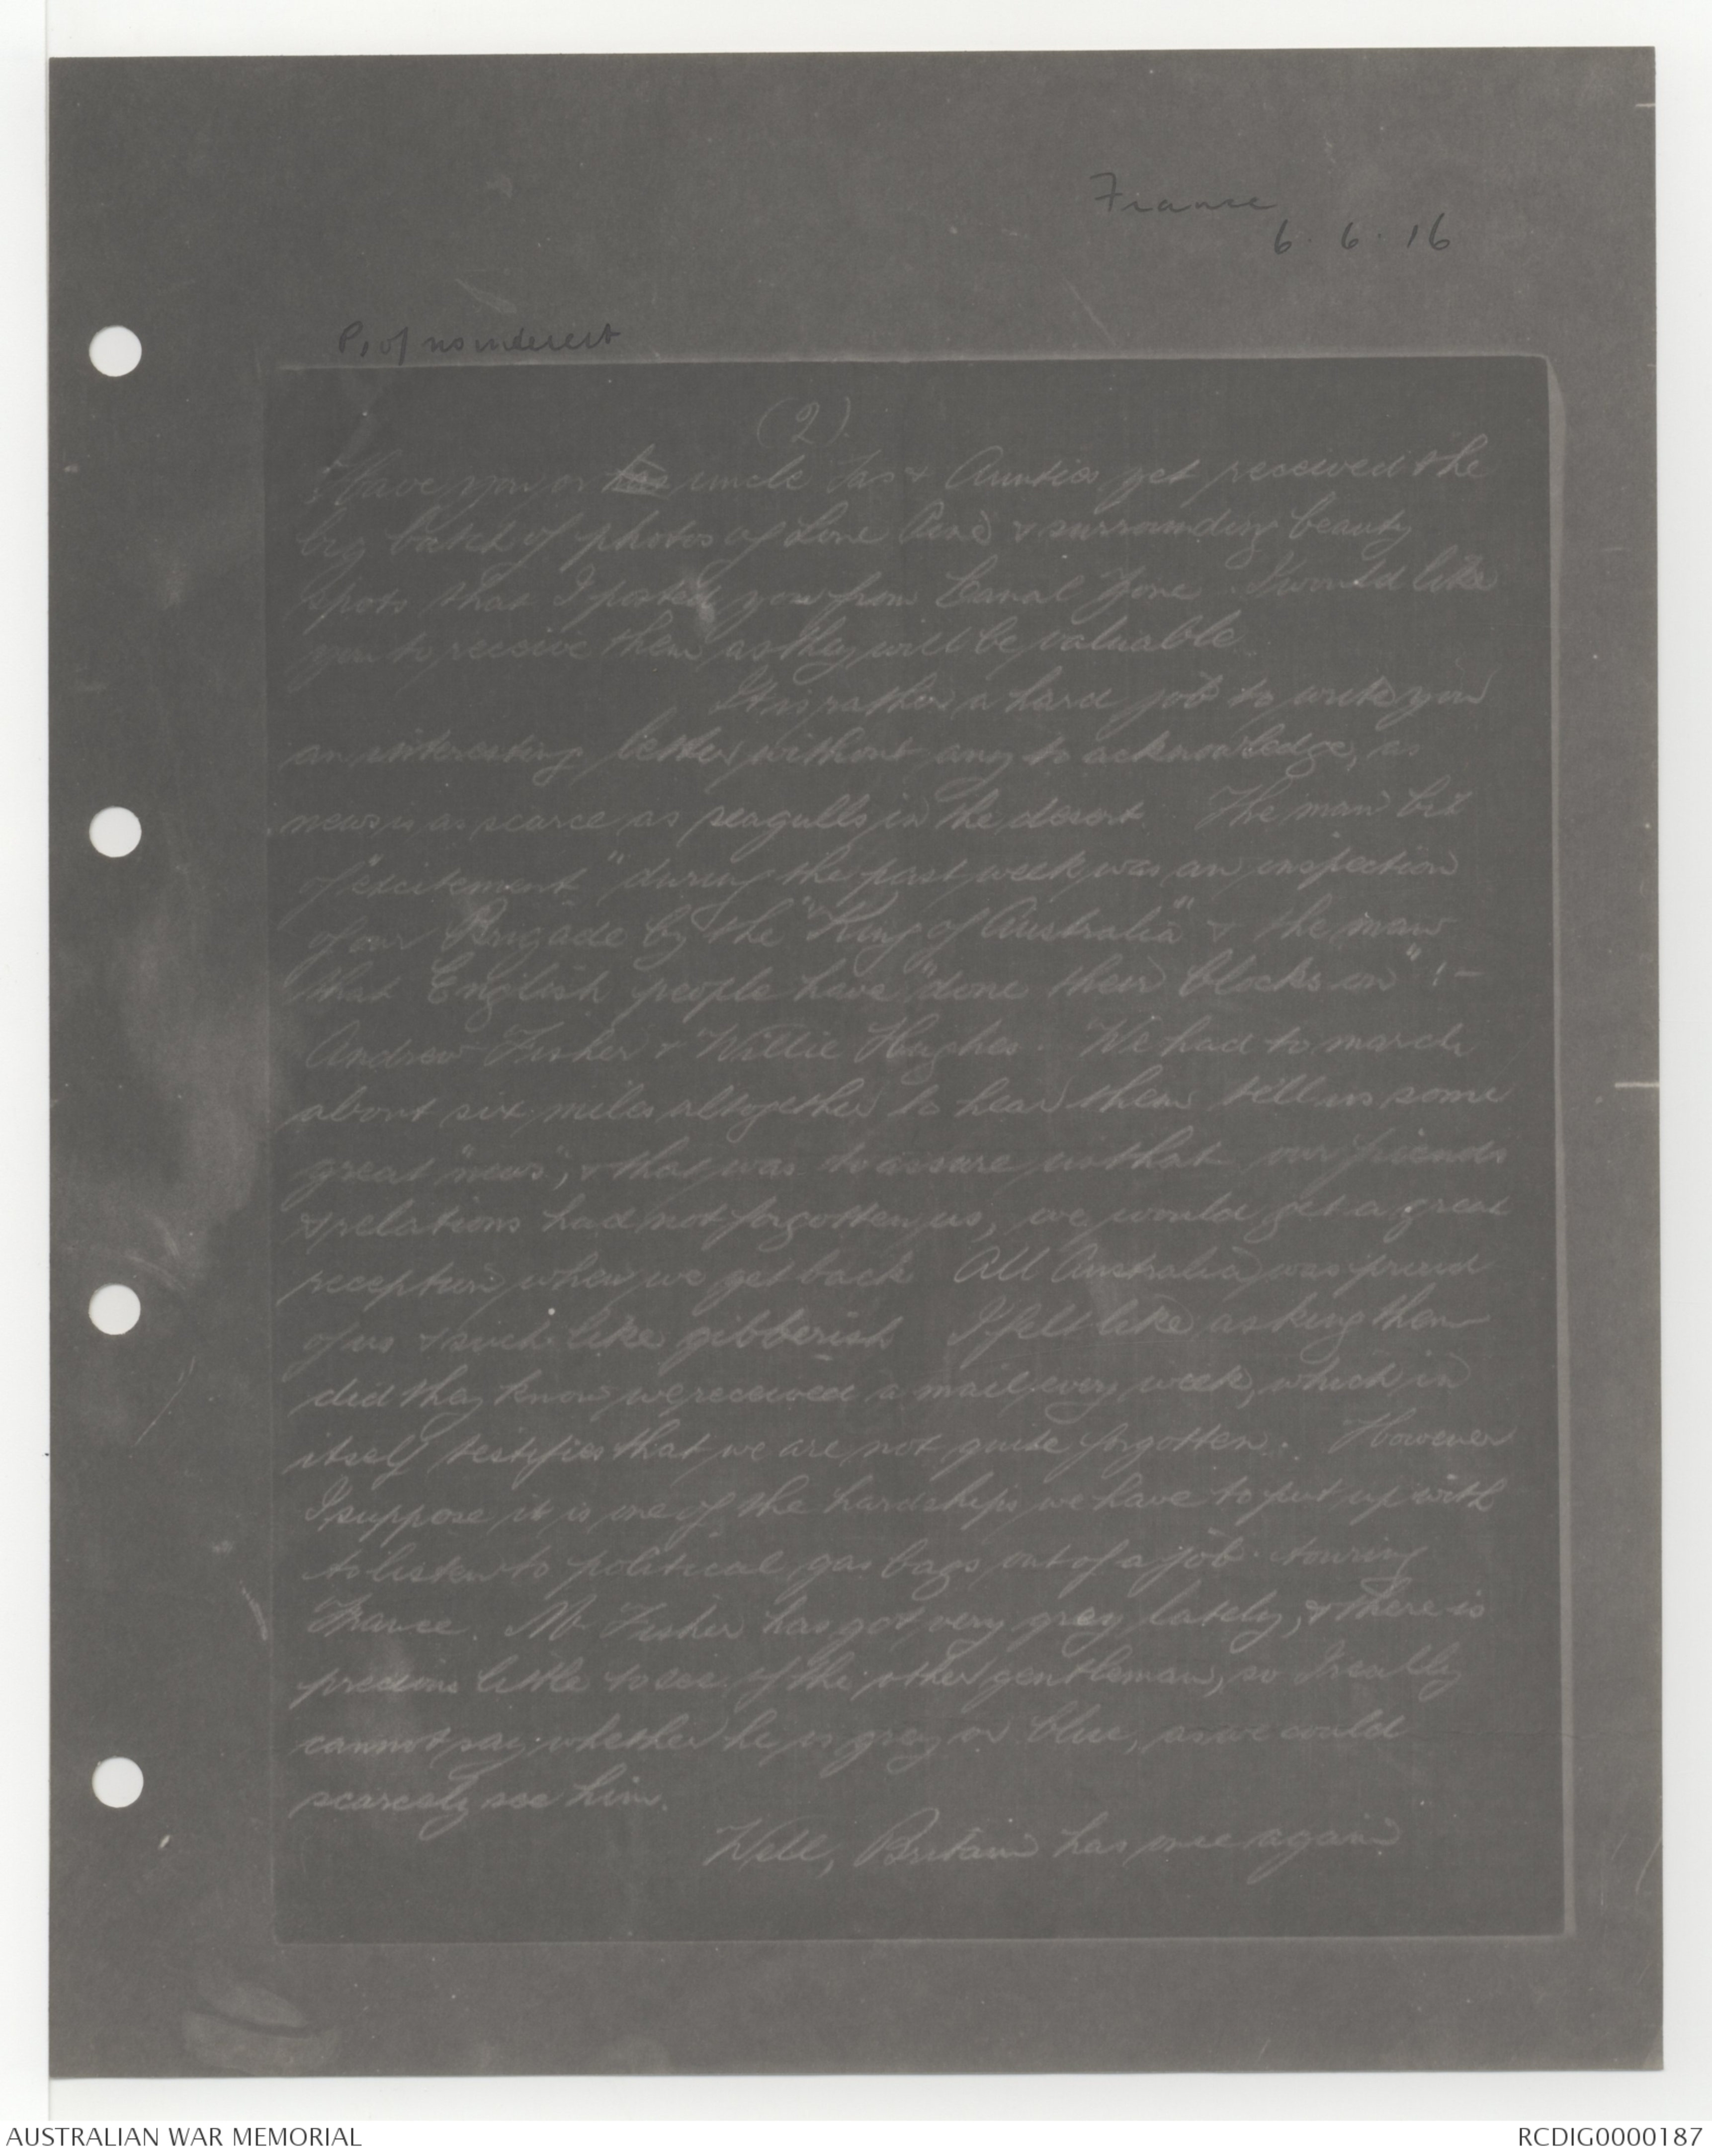 France
6.6.16
P1 of no interest
(2)
Have you or has uncle Jas & Aunties yet received the
big batch of photos of Lone Pine & surrounding beauty
spots that I posted you from Canal Zone. I would like
you to receive them as they will be valuable.
It is rather a hard job to write you
an interesting letter without any to acknowledge, as
news is as scarce as seagulls in the desert. The main bit
of "excitement" during the past week was an inspection
of our Brigade by the "King of Australia" & the man
that English people have "done their blocks on" :-
Andrew Fisher & Willie Hughes. We had to march
about six miles altogether to hear them tell us some
great "news", & that was to assure us that our friends
& relations had not forgotten us, we would get a great
reception when we get back All Australia was proud
of us & such like gibberish I felt like asking them
did they know we received a mail every week, which in
itself testifies that we are not quite forgotten. However
I suppose it is one of the hardships we have to put up with
to listen to political gas bags out of a job touring
France. Mr Fisher has got very grey lately, & there is
precious little to see of the other gentleman, so I really
cannot say whether he is grey or blue, as we could
scarcely see him.
Well, Britain has once again
AUSTRALIAN WAR MEMORIAL
RCDIG0000187